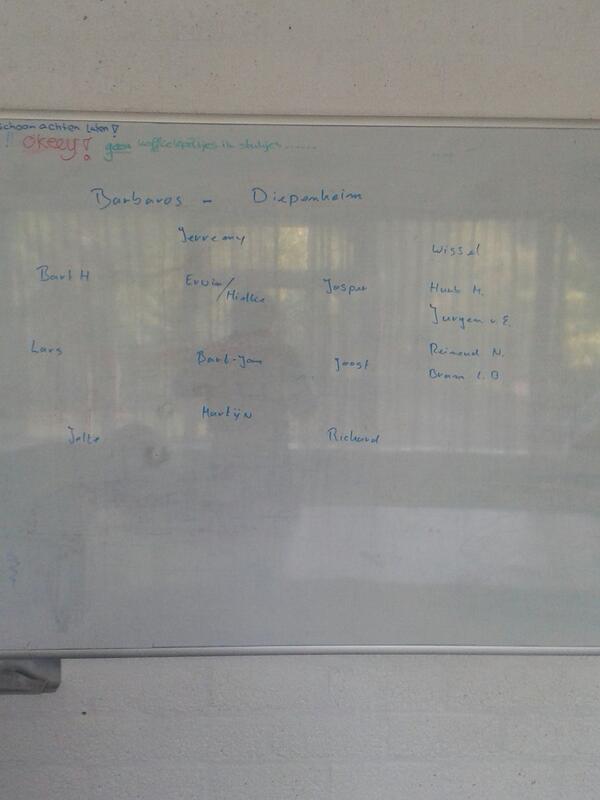 schoon achten laten!
!! Okeey! geen koffiekopjes ik stukjes......
Barbaros - Diepenheim
Jerremy
Wissel
Bart H
Erwin/Hielke
Jasper
Huub M.
Jurgen v. E.
Lars
Bart-Jan
Joost
Reimond N.
Bram t. B
Martijn
Jelte
Richard